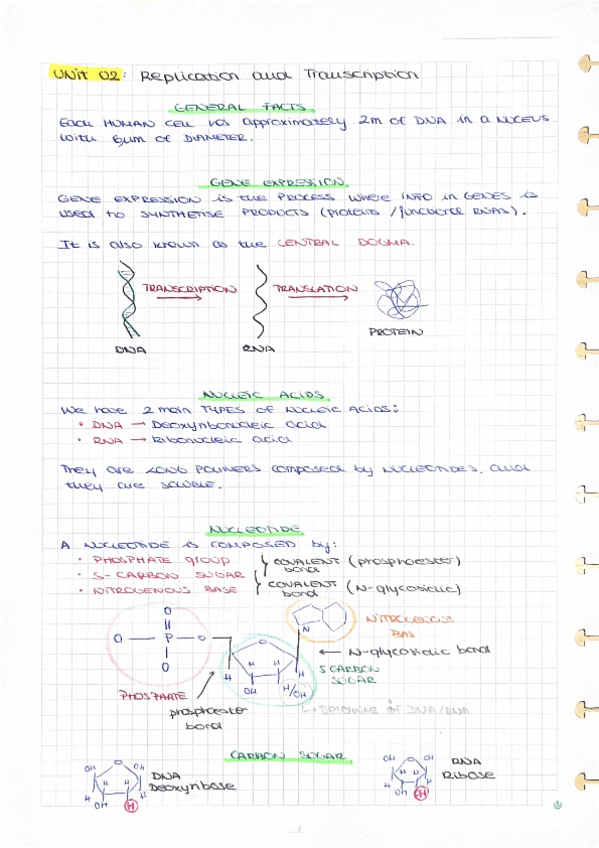 UNIT 02: Replication and Transcription
GENERAL FACTS.
Each HUMAN CELL has approximately 2m of DNA in a NUCEUS
with 6μm of DIAMETER.
GENE EXPRESSION.
GENE EXPRESSION is the PROCESS where INFO in GENES is
used to SYNTHETISE PRODUCTS (proteins / functional RNAs).
It is also known as the CENTRAL DOGMA.
TRANSCRIPTION
TRANSLATION
DNA
RNA
PROTEIN
NUCLEIC ACIDS.
We have 2 main TYPES of NUCLEIC ACIDS:
• DNA → Deoxyribonucleic acid
• RNA → Ribonucleic acid
They are LONG POLIMERS composed by NUCLEOTIDES, and
they are SOLUBLE.
NUCLEOTIDE.
A NUCLEOTIDE is COMPOSED by:
• PHOSPHATE group
• 5-CARBON SUGAR
• NITROGENOUS BASE
COVALENT (phosphoester)
bond
COVALENT (N-glycosidic)
bond
O
O P O
O
N
NITROGENOUS
BAS
N-glycosidic bond
5 CARBON
SUGAR
H H H H
OH H/OH
PHOSPHATE
phosphoester
bond
Determine if DNA/RNA
CARBON SUGAR
OH O OH
H H H H
OH H
DNA
Deoxyribose
OH O OH
H H H
OH OH
RNA
Ribose